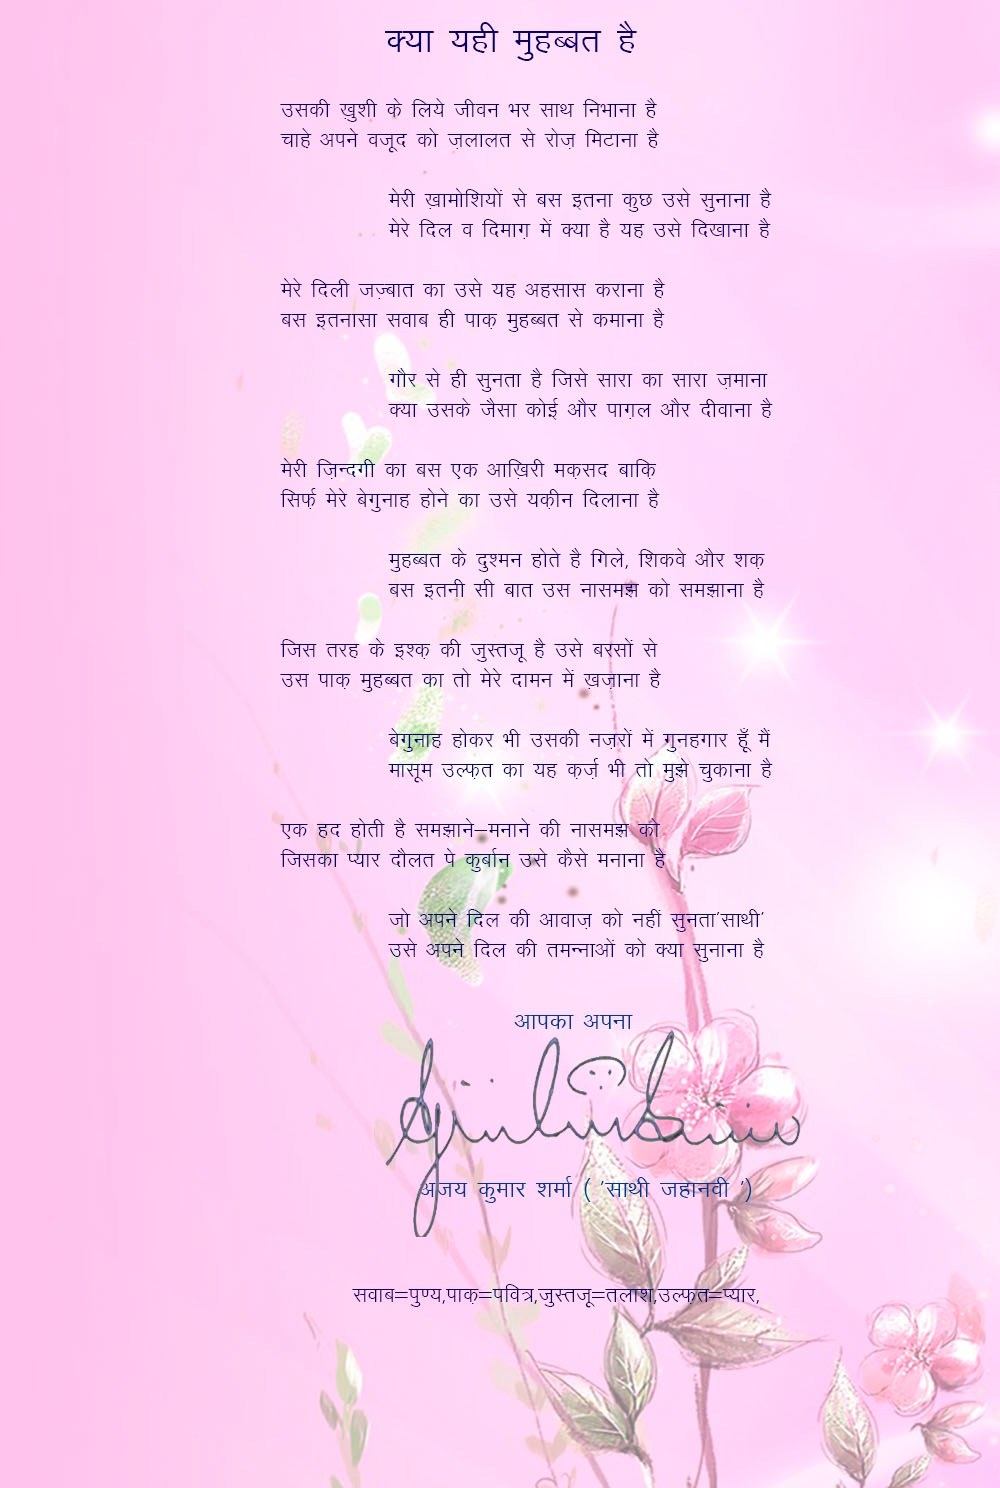 क्या यही मुहब्बत है
उसकी ख़ुशी के लिये जीवन भर साथ निभाना है
चाहे अपने वजूद को ज़लालत से रोज़ मिटाना है
मेरी ख़ामोशियों से बस इतना कुछ उसे सुनाना है
मेरे दिल व दिमाग़ में क्या है यह उसे दिखाना है
मेरे दिली जज़्बात का उसे यह अहसास कराना है
बस इतनासा सवाब ही पाक़ मुहब्बत से कमाना है
गौर से ही सुनता है जिसे सारा का सारा ज़माना
क्या उसके जैसा कोई और पाग़ल और दीवाना है
मेरी ज़िन्दगी का बस एक आख़िरी मक़सद बाक़ि
सिर्फ़ मेरे बेगुनाह होने का उसे यक़ीन दिलाना है
मुहब्बत के दुश्मन होते है गिले, शिकवे और शक़
बस इतनी सी बात उस नासमझ को समझाना है
जिस तरह के इश्क़ की जुस्तजू है उसे बरसों से
उस पाक़ मुहब्बत का तो मेरे दामन में ख़ज़ाना है
बेगुनाह होकर भी उसकी नज़रों में गुनहगार हूँ मैं
मासूम उल्फ़त का यह क़र्ज़ भी तो मुझे चुकाना है
एक हद होती है समझाने–मनाने की नासमझ को
जिसका प्यार दौलत पे कुर्बान उसे कैसे मनाना है
जो अपने दिल की आवाज़ को नहीं सुनता'साथी'
उसे अपने दिल की तमन्नाओं को क्या सुनाना है
आपका अपना
अजय कुमार शर्मा ( 'साथी जहानवी ')
सवाब=पुण्य,पाक़=पवित्र,जुस्तजू=तलाश,उल्फ़त=प्यार,